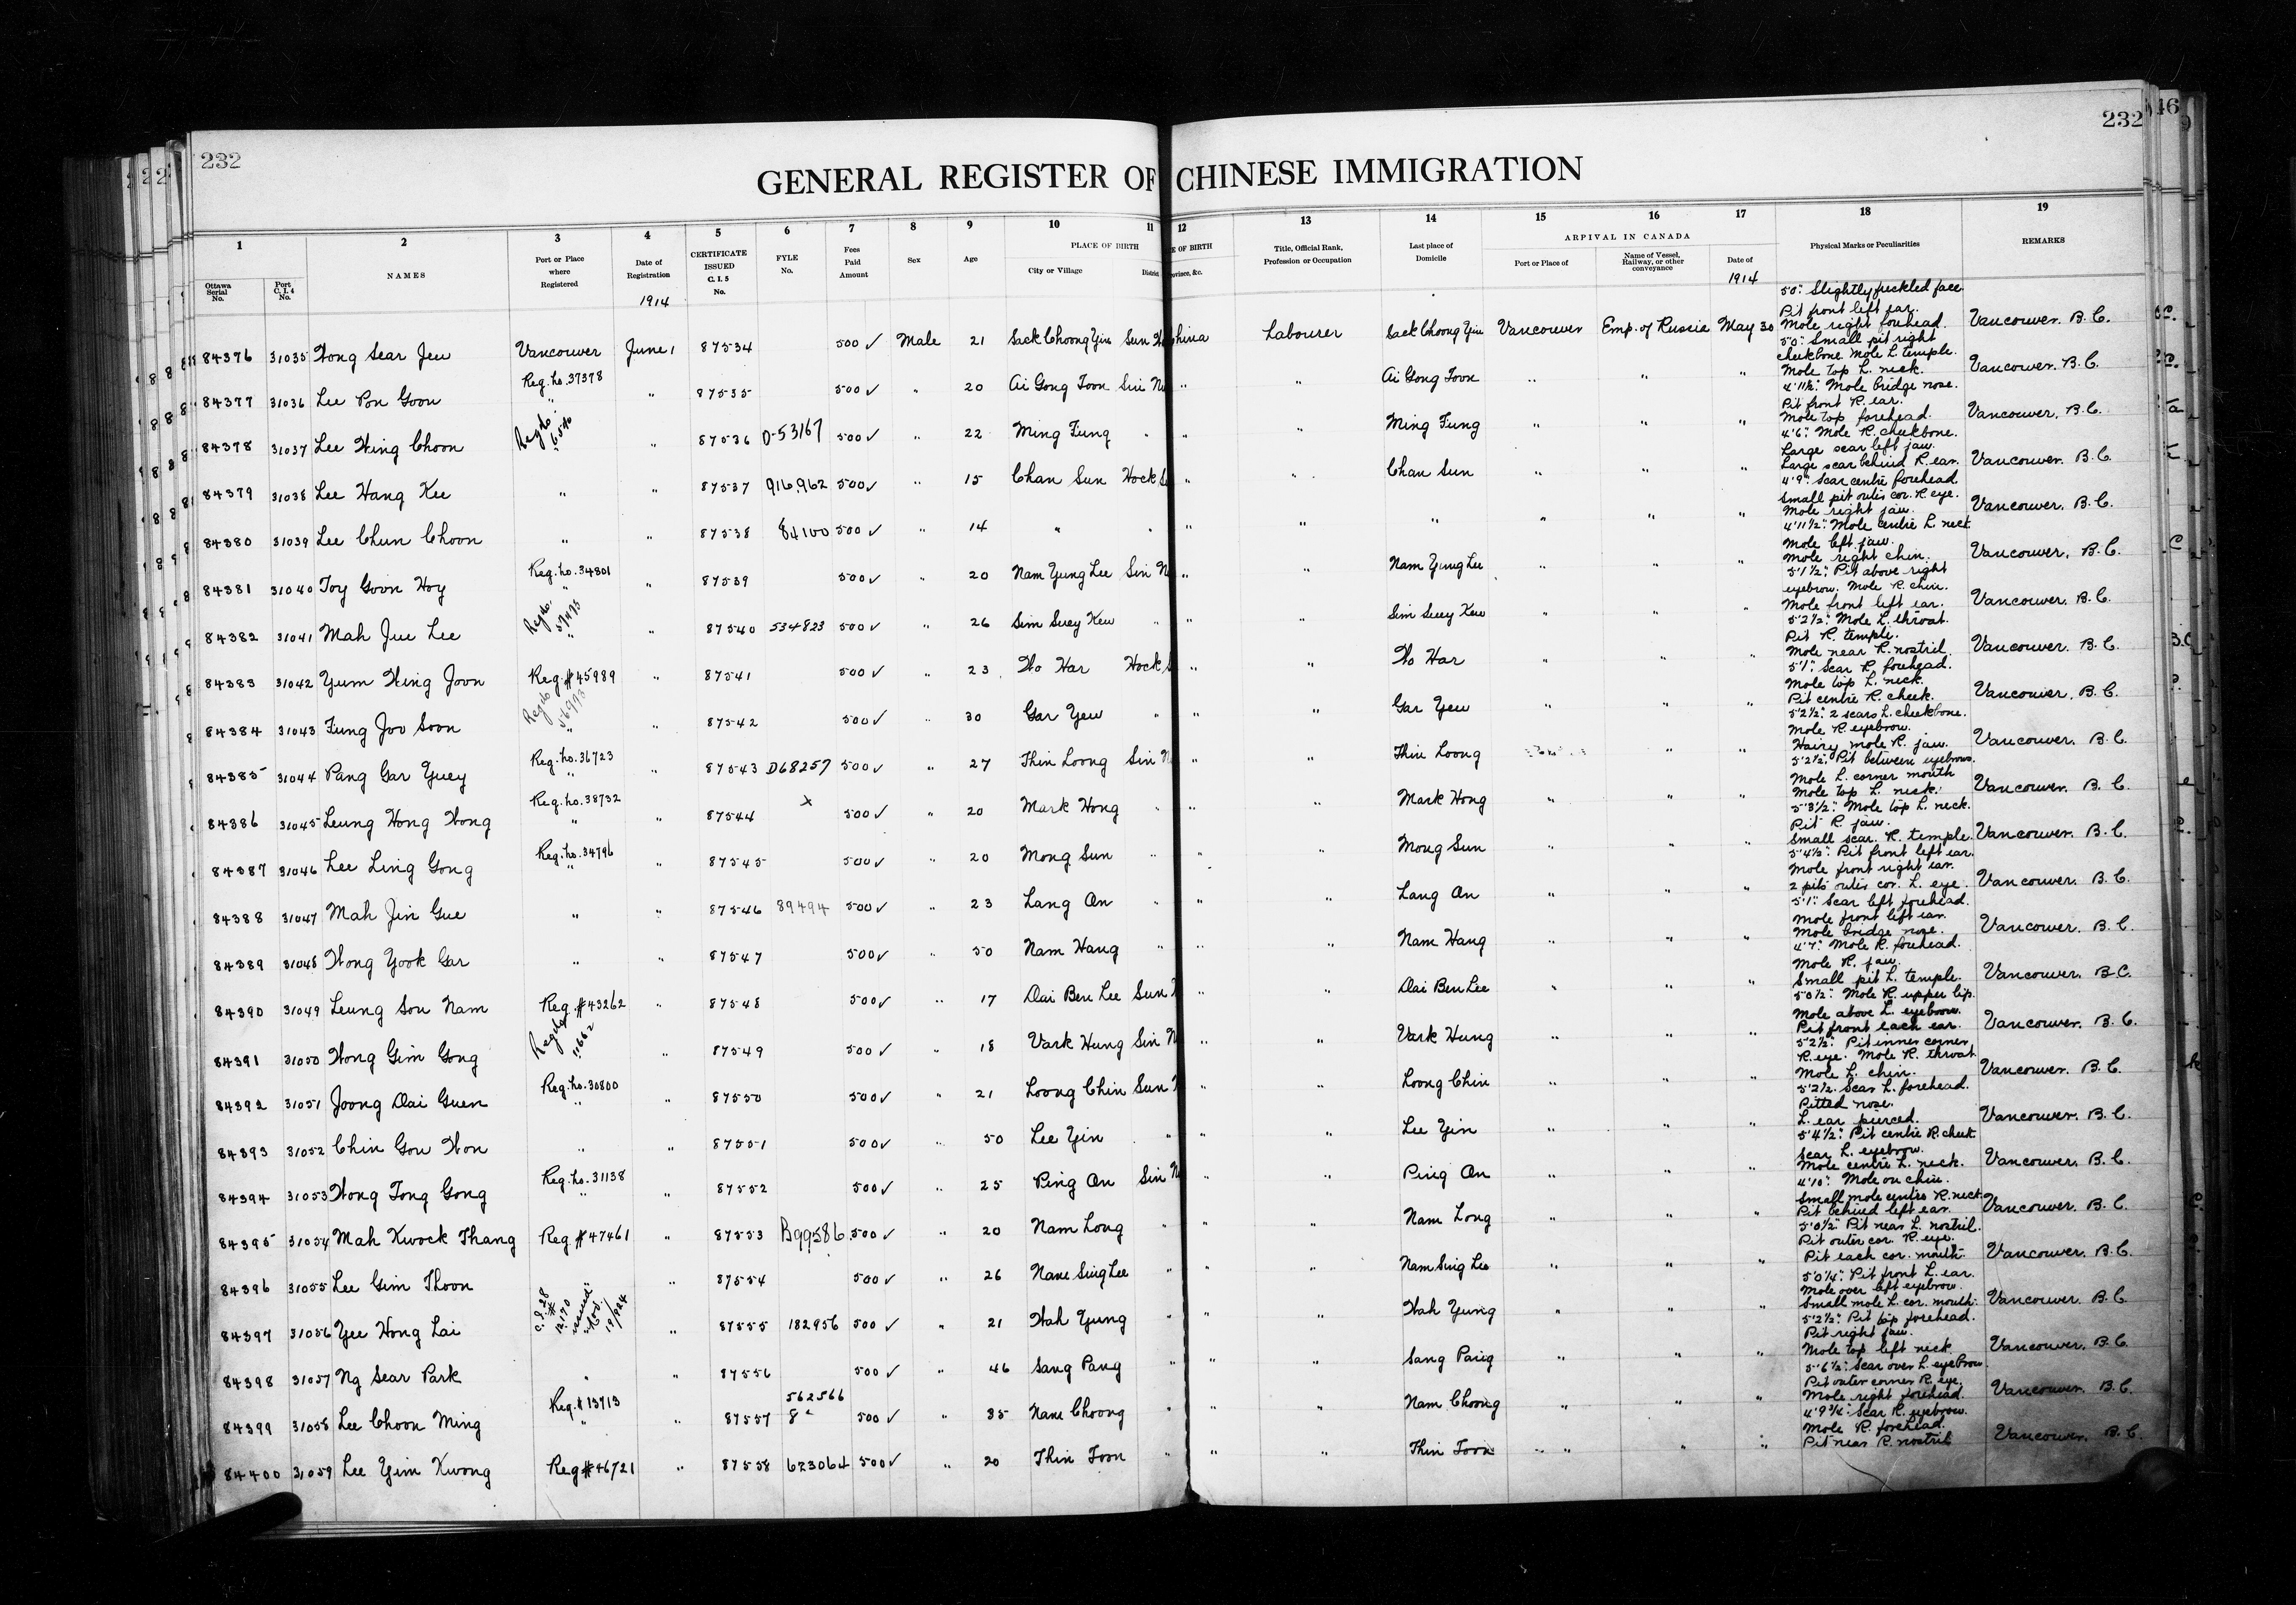 232
232
46
GENERAL REGISTER OF CHINESE IMMIGRATION
1 2 3 4 5 6 7 8 9 10 11 12 13 14 15 16 17 18 19
Ottawa Serial No. Port C. I. 4 No. NAMES Port or Place where Registered Date of Registration CERTIFICATE ISSUED C. I. 5 No. FYLE No. Fees Paid Amount Sex Age PLACE OF BIRTH City or Village District E OF BIRTH ovince, &c. Title, Official Rank, Profession or Occupation Last place of Domicile ARRIVAL IN CANADA Port or Place of Name of Vessel, Railway, or other conveyance Date of Physical Marks or Peculiarities REMARKS
1914 1914
84376 31035 Wong Sear Jeu Vancouver June 1 87534 500 ✓ Male 21 Sack Choong Yin Sun China Labourer Sack Choong Yin Vancouver Emp. of Russia May 30 5'0": Slightly freckled face. Pit front left ear. Mole right forehead. Vancouver. B.C.
84377 31036 Lee Pon Goon Reg. No. 37378 " " 87535 500 ✓ " 20 Ai Gong Toon Sin N " " Ai Gong Toon " " " 5'0": Small pit right cheekbone Mole L. temple. Mole top L. neck. Vancouver. B.C.
84378 31037 Lee Wing Choon Reg No. 6540 " " 87536 D-53167 500 ✓ " 22 Ming Fung " " " Ming Fung " " " 4'11½": Mole bridge nose. Pit front R. ear. Mole top forehead. Vancouver. B.C.
84379 31038 Lee Hang Kee " " 87537 916,962 500 ✓ " 15 Chan Sun Hock S " " Chan Sun " " " 4'6": Mole R. cheekbone. Large scar left jaw. Large scar behind R. ear. Vancouver. B.C.
84380 31039 Lee Chun Choon " " 87538 84100 500 ✓ " 14 " " " " " " " " 4'9": Scar centre forehead. Small pit outer cor. R. eye. Mole right jaw. Vancouver. B.C.
84381 31040 Toy Goon Hoy Reg. No. 34801 " " 87539 500 ✓ " 20 Nam Yung Lee Sin N " " Nam Yung Lee " " " 4'11½": Mole centre L. neck Mole left jaw. Mole right chin. Vancouver. B.C.
84382 31041 Mah Jue Lee Reg No. 57493 " " 87540 534823 500 ✓ " 26 Sim Suey Kew " " " Sim Suey Kew " " " 5'1½": Pit above right eyebrow. Mole R. chin. Mole front left ear. Vancouver. B.C.
84383 31042 Yum Wing Joon Reg. # 45989 " 87541 500 ✓ " 23 Wo Har Hock S " " Wo Har " " " 5'2½": Mole L. throat. Pit R. temple. Mole near R. nostril. Vancouver. B.C.
84384 31043 Fung Joo Soon Reg No 56993 " " 87542 500 ✓ " 30 Gar Yew " " " Gar Yew " " " 5'1": Scar R. forehead. Mole top L. neck. Pit centre R. cheek. Vancouver. B.C.
84385 31044 Pang Gar Yuey Reg. No. 36723 " " 87543 D68257 500 ✓ " 27 Thin Loong Sin N " " Thin Loong " " 5'2½": 2 scars L. cheekbone. Mole R. eyebrow. Hairy mole R. jaw. Vancouver. B.C.
84386 31045 Leung Hong Wong Reg. No. 38732 " " 87544 x 500 ✓ " 20 Mark Hong " " " Mark Hong " " " 5'2½": Pit between eyebrows. Mole L. corner mouth Mole top L. neck. Vancouver. B.C.
84387 31046 Lee Ling Gong Reg. No. 34796 " " 87545 500 ✓ " 20 Mong Sun " " " Mong Sun " " " 5'3½": Mole top L. neck. Pit R. jaw. Small scar. R. temple. Vancouver. B.C.
84388 31047 Mah Jin Gue " " 87546 89494 500 ✓ " 23 Lang On " " " Lang On " " " 5'4½": Pit front left ear. Mole front right ear. 2 pits outer cor. L. eye. Vancouver. B.C.
84389 31048 Wong Yook Gar " " 87547 500 ✓ " 50 Nam Hang " " " Nam Hang " " " 5'1": Scar left forehead. Mole front left ear. Mole bridge nose. Vancouver. B.C.
84390 31049 Leung Sou Nam Reg. # 43262 " 87548 500 ✓ " 17 Dai Ben Lee Sun " " Dai Ben Lee " " " 4'7": Mole R. forehead. Mole R. jaw. Small pit L. temple. Vancouver. B.C.
84391 31050 Wong Gim Gong Reg No 11662 " 87549 500 ✓ " 18 Vark Hung Sin N " " Vark Hung " " " 5'0½": Mole R. upper lip. Mole above L. eyebrow. Pit front each ear. Vancouver. B.C.
84392 31051 Joong Dai Guen Reg. No. 30800 " " 87550 500 ✓ " 21 Loong Chin Sun " " Loong Chin " " " 5'2½": Pit inner corner R. eye. Mole R. throat Mole L. chin. Vancouver. B.C.
84393 31052 Chin Gou Won " " 87551 500 ✓ " 50 Lee Yin " " " Lee Yin " " " 5'2½. Scar L. forehead. Pitted nose. L. ear pierced. Vancouver. B.C.
84394 31053 Wong Tong Gong Reg. No. 31138 " " 87552 500 ✓ " 25 Ping On Sin N " " Ping On " " " 5'4½": Pit centre R. cheek Scar L. eyebrow. Mole centre L. neck. Vancouver. B.C.
84395 31054 Mah Kwock Thang Reg. # 47461 " 87553 B99586 500 ✓ " 20 Nam Long " " " Nam Long " " " 4'10": Mole on chin. Small mole centre R. neck. Pit behind left ear. Vancouver. B.C.
84396 31055 Lee Gim Thoon " 87554 500 ✓ " 26 Nam Sing Lee " " " Nam Sing Lee " " " 5'0½" Pit near L. nostril. Pit outer cor. R. eye. Pit each cor. mouth. Vancouver. B.C.
84397 31056 Yee Hong Lai C.I. 28 # 12170 issued 19/1924 " 87555 182956 500 ✓ " 21 Wah Yung " " " Wah Yung " " " 5'0¼": Pit front L. ear. Mole over left eyebrow Small mole L. cor. mouth. Vancouver. B.C.
84398 31057 Ng Sear Park " " 87556 500 ✓ " 46 Sang Pang " " " Sang Pang " " " 5'2½": Pit top forehead. Pit right jaw. Mole top left neck Vancouver. B.C.
84399 31058 Lee Choon Ming Reg. # 13713 " " 87557 562566 8 500 ✓ " 35 Nam Choong " " " Nam Choong " " " 5'6½": Scar over L. eyebrow. Pit outer corner R. eye. Mole right forehead. Vancouver. B.C.
84400 31059 Lee Yim Kwong Reg # 46721 " 87558 623064 500 ✓ " 20 Thin Toon " " " Thin Toon " " " 4'9¾": Scar R. eyebrow. Mole R. forehead. Pit near R. nostril Vancouver. B.C.